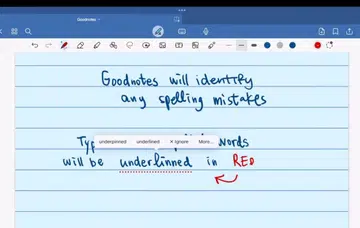 Goodnotes
Goodnotes will identify
any spelling mistakes
underpinned underlined × Ignore More...
words
will be underlinned in RED